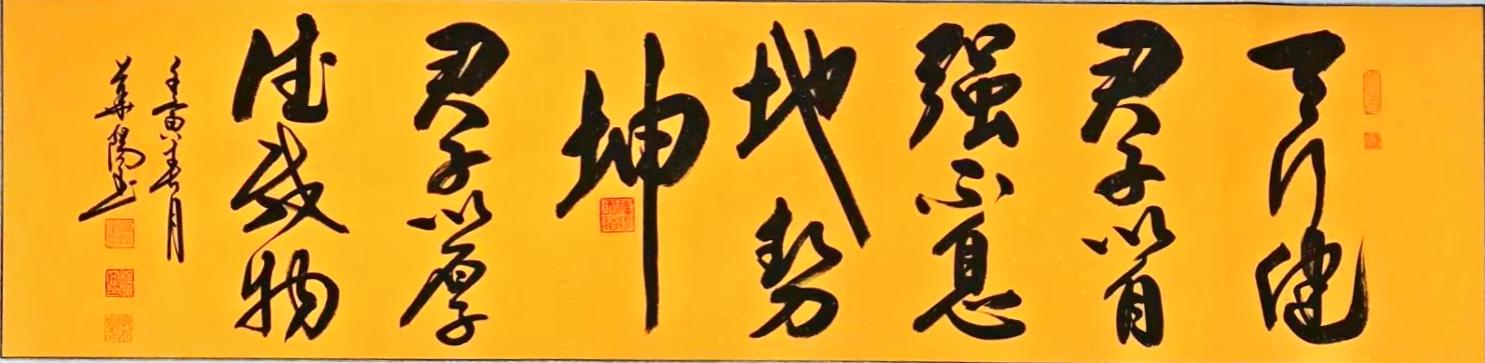 天行健
君子以自
强不息
地势
坤
君子以厚
德载物
壬寅年春月
華陽书